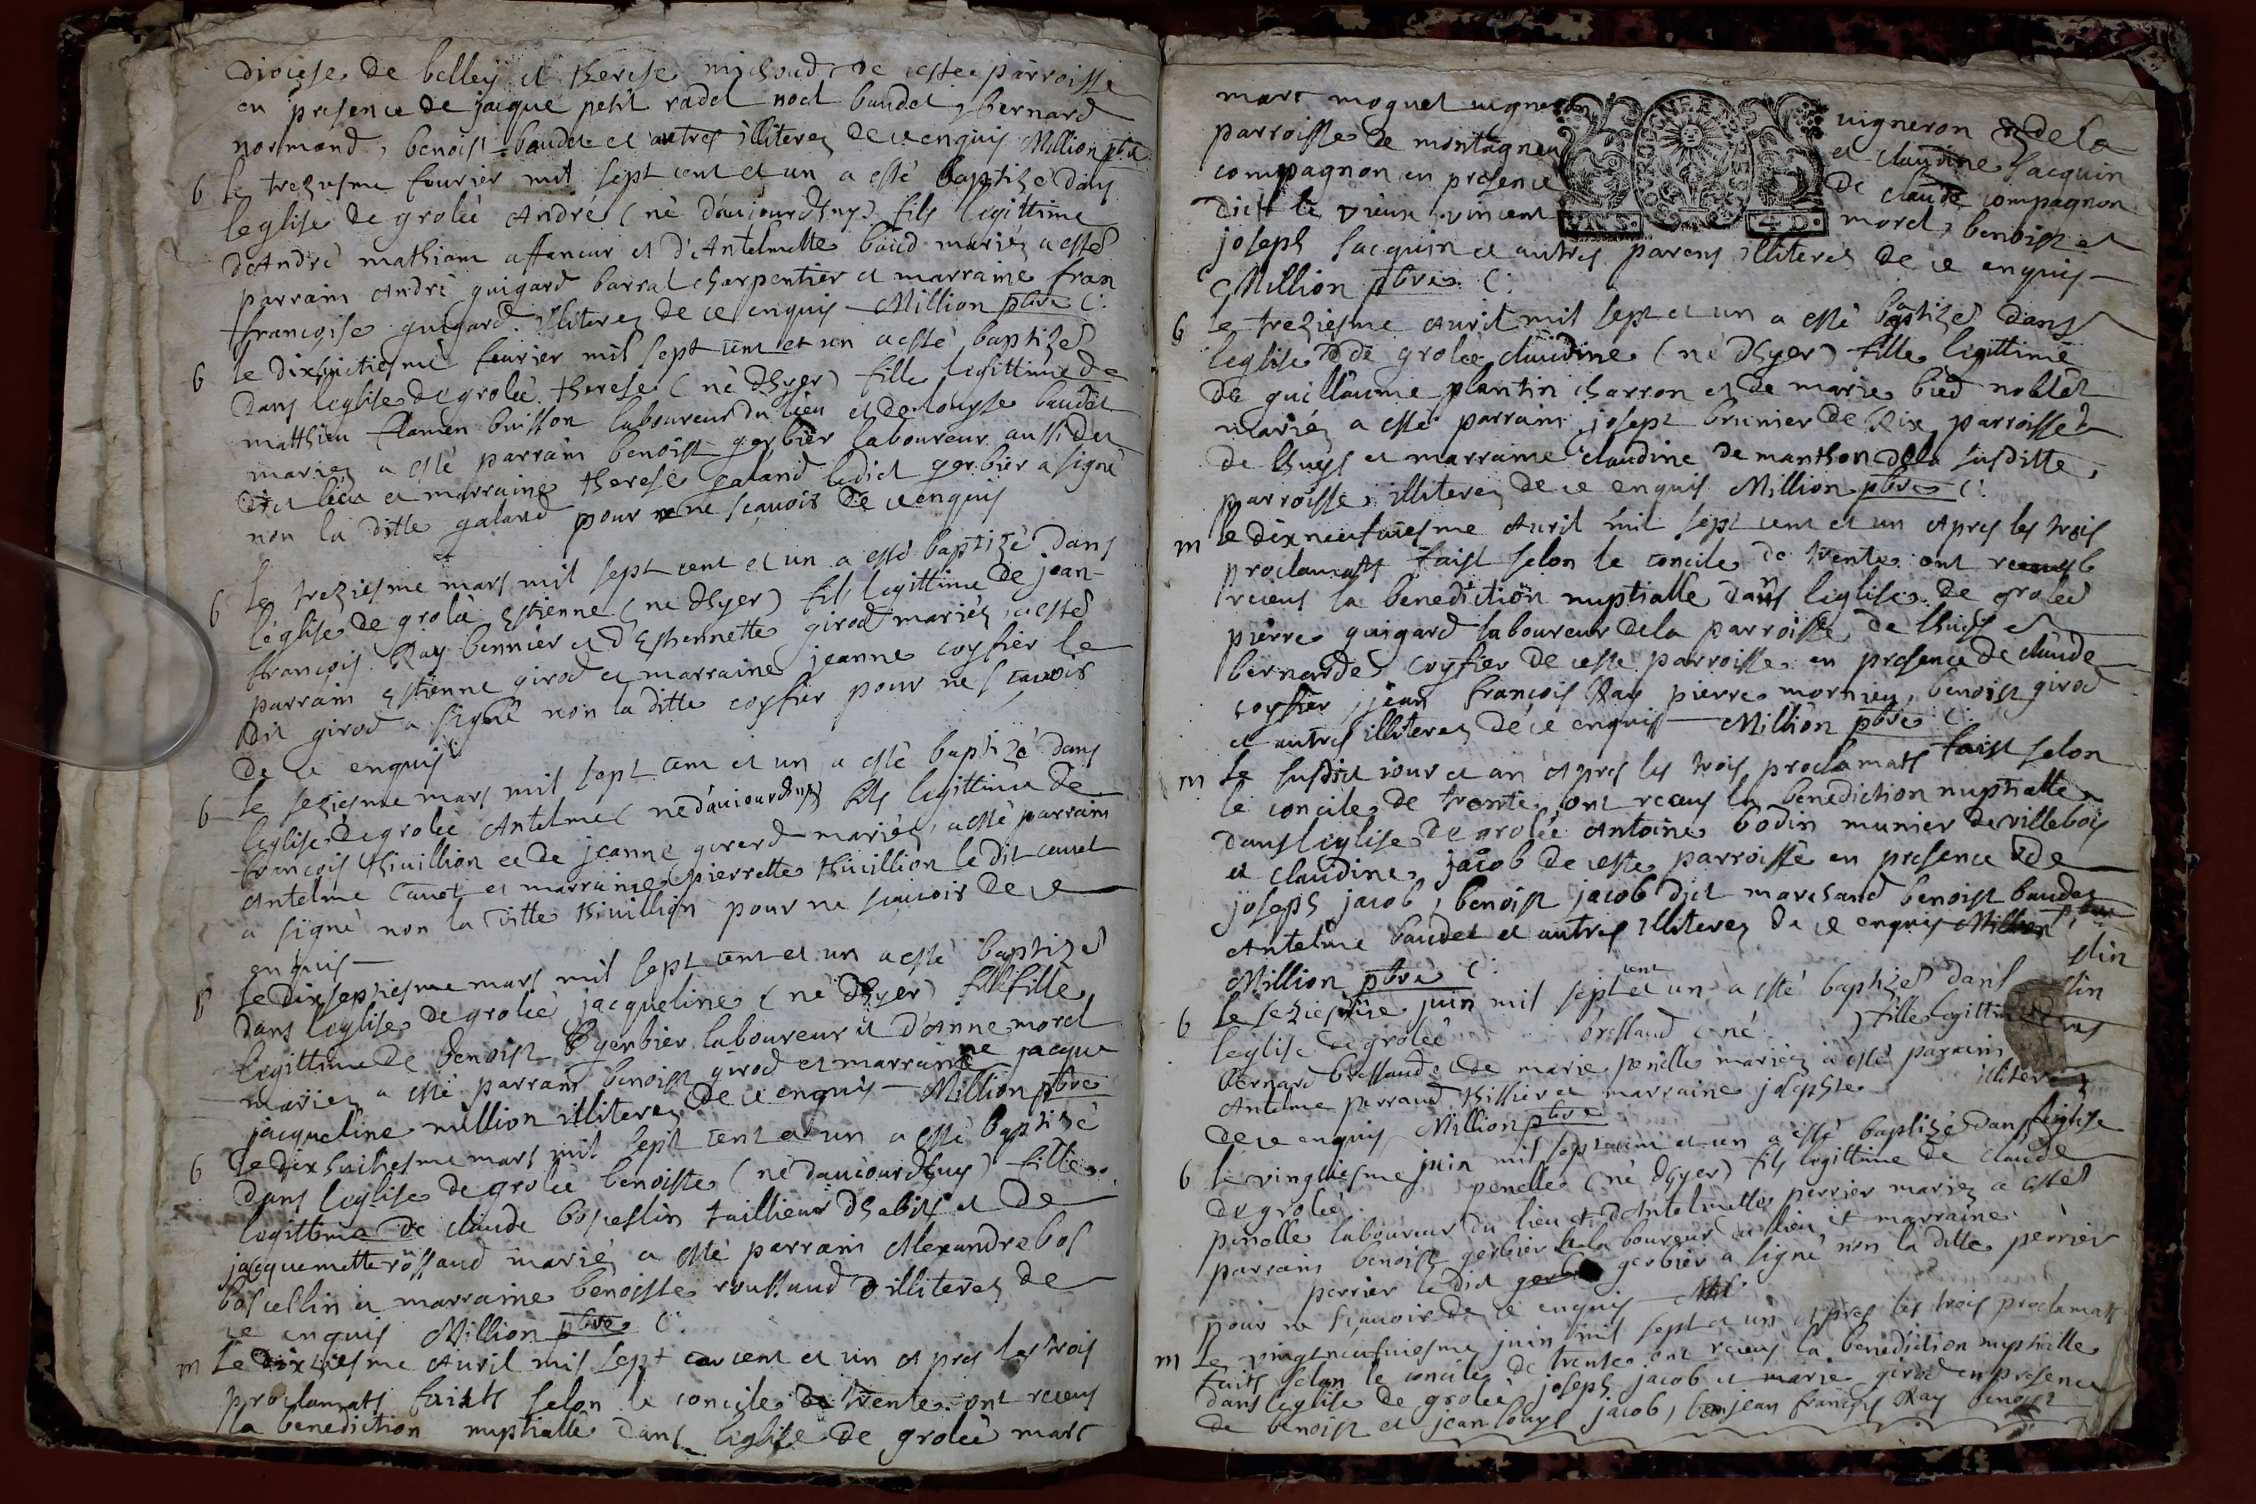 diocese de belley et therese michoud de cestee parroisse
en presence de jacque petit radel noel baudet, bernard
normand, benoist baudet et autres illiterez de ce enquis Million pbre
b le treziesme feurier mil sept cent et un a esté baptizé dans
leglise de grolée André (né d'aujourdhuy) fils legittime
d'André mathiam affaneur et d'Antelmette baud mariéz a esté
parrain André guigard barral charpentier et marraine fran
francoise guigard illiterez de ce enquis Million pbre C:
b le dixhuictiesme feurier mil sept cent et un a esté baptizé
dans leglise de grolée therese (né dhyer) fille legittime de
matthieu flamen buisson laboureur du lieu et de louyse baudet
mariez a esté parrain benoist gerbier laboureur aussi du
dit lieu et marraine therese galand ledict gerbier a signé
non la ditte galand pour ne scauoir de ce enquis
b le treziesme mars mil sept cent et un a esté baptizé dans
l'eglise de grolée Estienne (né dhyer) fils legittime de jean
francois Ray bennier et d'Estiennette girod mariéz, a esté
parrain Estienne girod et marraine jeanne coyfier le
dit girod a signé non la ditte coyfier pour ne scauoir
de ce enquis
b le seziesme mars mil sept cent et un a esté baptizé dans
leglise de grolée Antelme (né d'aujourdhuy) fils legittime de
francois thiuillion et de jeanne girerd mariéz, a esté parrain
Antelme Cauet et marraine pierrette thiuillion le dit cauet
a signé non la ditte thiuillion pour ne scauoir de ce
enquis
b le dixseptiesme mars mil sept cent et un a esté baptizé
dans leglise de grolée jacqueline (né dhyer) fille
legittime de benoist gerbier laboureur et d'Anne morel
mariez a esté parrain benoist girod et marraine jacque
jacqueline million illiterez de ce enquis Million pbre
b le dixhuitiesme mars mil sept cent et un a esté baptizé
dans leglise de grolée benoiste (né daujourdhuy) fille
legittime de claude boscellin taillieur dhabits et de
jacquemette roussaud mariéz a esté parrain Alexandre bos
boscellin et marraine benoiste roussaud illiterez de
ce enquis Million pbre C:
m le dixiesme Auril mil sept cent et un Apres les trois
proclamats faicts selon le concile de trente ont receus
la benediction nuptialle dans leglise de grolée marc
marc moguet uigneron uigneron de la
parroisse de montagneu et claudine Jacquin
compagnon en presence de claude compagnon
dict le vieux, vincent morel, benoist et
joseph Jacquin et autres parens illiterez de ce enquis
Million pbre C:
BOURGOGNE BRESSE
VN S. 4 D.
b le treziesme Auril mil sept et un a esté baptizé dans
leglise de grolée claudine (né dhyer) fille legittime
de guillaume plantin charron et de marie bied noblet
mariéz a esté parrain josept brunier de Rix parroisse
de lhuys et marraine claudine de manthon de la susditte
parroisse illiterez de ce enquis Million pbre C:
m le dixneufuiesme Auril mil sept cent et un Apres les trois
proclamats faist selon le concile de trente ont
receus la benediction nuptialle dans leglise de grolee
pierre guigard laboureur de la parroisse de lhuis et
bernarde coyfier de ceste parroisse en presence de claude
coyfier, jean francois Ray pierre mornieu, benoist girod
et autres illiterez de ce enquis Million pbre C:
m le susdict iour et an Apres les trois proclamats faist selon
le concile de trente ont receus la benediction nuptialle
dans leglise de grolée Antoine bodin munier de villebois
et claudine jacob de ceste parroisse en presence de
joseph jacob, benoist jacob dict marchand benoist baudet
Antelme baudet et autres illiterez de ce enquis Million pbre
Million pbre C:
b le seziesme juin mil sept cent et un a esté baptizé dans
leglise de grolée bressaud (né ) fille legittime
bernard bressaud et de marie penelle mariéz a esté parrain
Antelme perraud thillier et marraine josephte illiterez
de ce enquis Million pbre
b le vingtiesme juin mil sept cent et un a esté baptizé dans leglise
de grolée penelle (né dhyer) fils legittime de claude
penelle laboureur du lieu et d'Antelmette perrier mariez a esté
parrain benoist gerbier laboureur du lieu et marraine
perrier le dict gerbier a signé non la ditte perrier
pour ne scauoir de ce enquis Mil
m le vingtneufuiesme juin mil sept et un Apres les trois proclamats
faits selon le concile de trente ont receus la benediction nuptialle
dans leglise de grolée joseph jacob et marie girod en presence
de benoist et jean louys jacob, jean francois Ray benoist